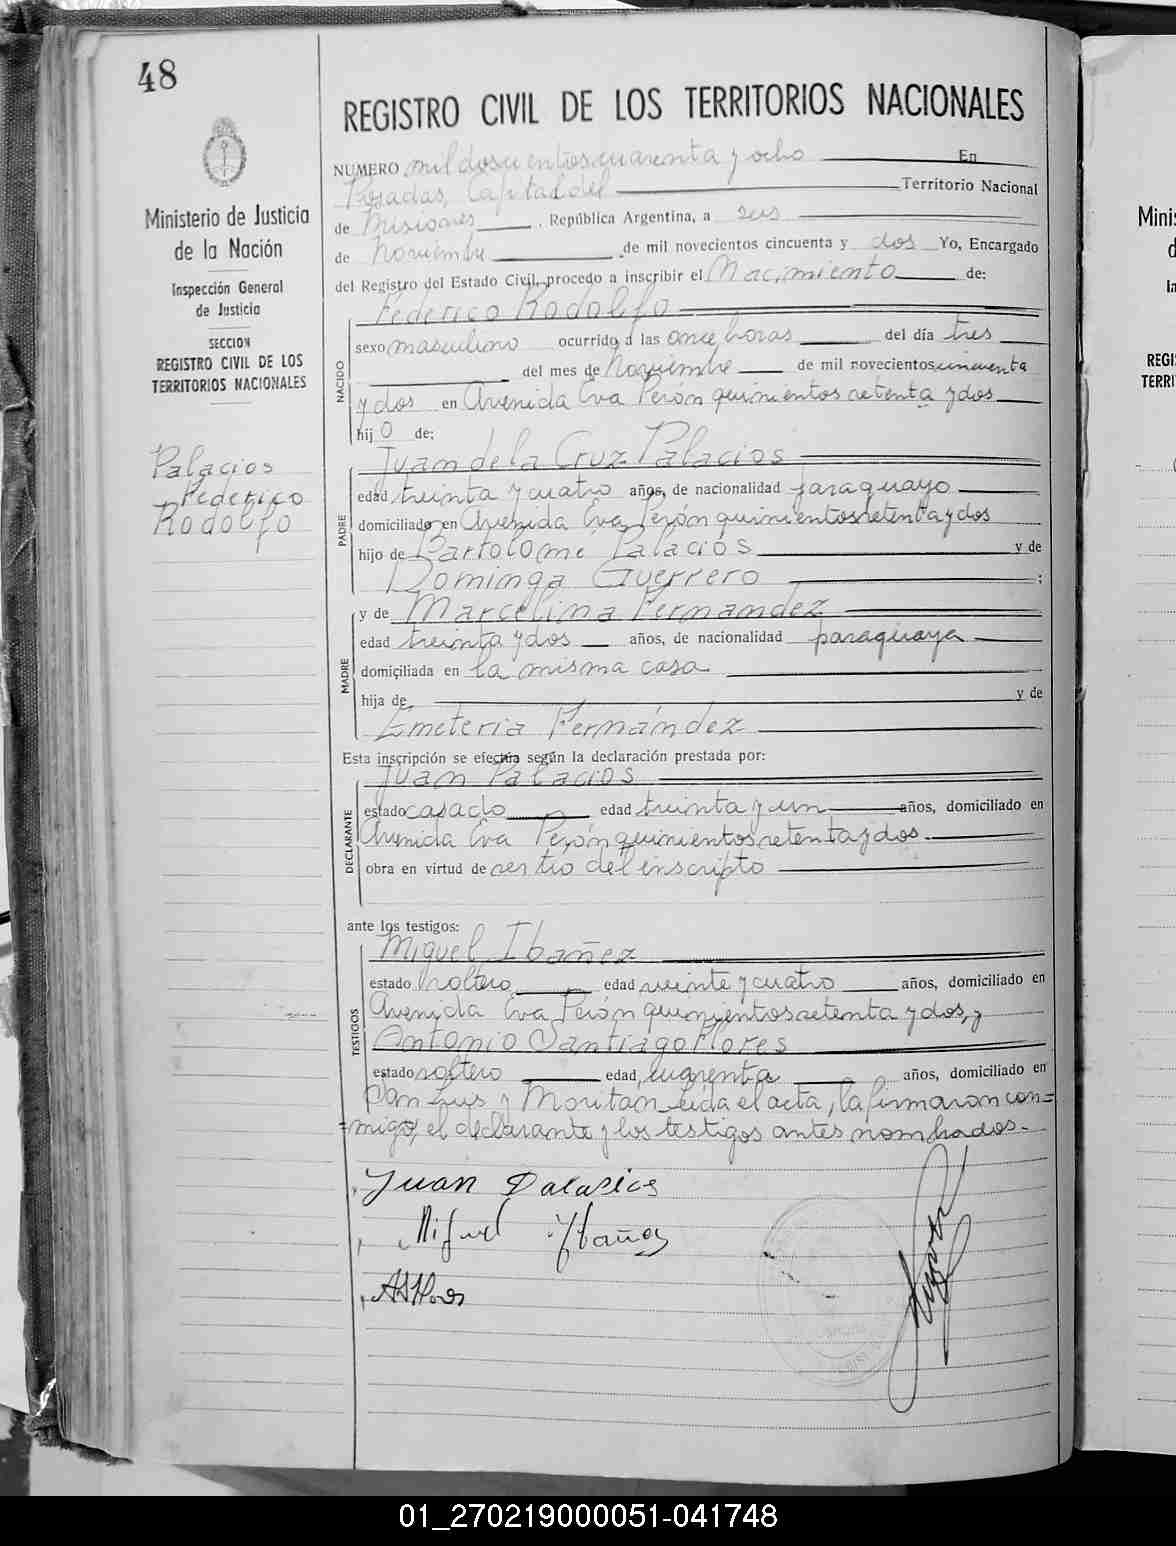 48
REGISTRO CIVIL DE LOS TERRITORIOS NACIONALES
Ministerio de Justicia
de la Nación
Inspección General
de Justicia
SECCION
REGISTRO CIVIL DE LOS
TERRITORIOS NACIONALES
Palacios
Federico
Rodolfo
NUMERO mil doscientos cuarenta y ocho En
Posadas, Capital del Territorio Nacional
de Misiones, República Argentina, a seis
de Noviembre de mil novecientos cincuenta y dos Yo, Encargado
del Registro del Estado Civil, procedo a inscribir el Nacimiento de:
NACIDO
Federico Rodolfo
sexo masculino ocurrido a las once horas del día tres
del mes de Noviembre de mil novecientos cincuenta
y dos en Avenida Eva Perón quinientos setenta y dos
hijo de:
PADRE
Juan de la Cruz Palacios
edad treinta y cuatro años, de nacionalidad paraguayo
domiciliado en Avenida Eva Perón quinientos setenta y dos
hijo de Bartolomé Palacios y de
Dominga Guerrero;
MADRE
y de Marcelina Fernandez
edad treinta y dos años, de nacionalidad paraguaya
domiciliada en la misma casa
hija de y de
Emeteria Fernández
Esta inscripción se efectúa según la declaración prestada por:
DECLARANTE
Juan Palacios
estado casado edad treinta y un años, domiciliado en
Avenida Eva Perón quinientos setenta y dos.
obra en virtud de ser tio del inscripto
ante los testigos:
TESTIGOS
Miguel Ibañez
estado soltero edad veinte y cuatro años, domiciliado en
Avenida Eva Perón quinientos setenta y dos, y
Antonio Santiago Flores
estado soltero edad, cuarenta años, domiciliado en
San Luis y Moritan Leida el acta, la firmaron con=
=migo, el declarante y los testigos antes nombrados.-
Juan Palacios
Miguel Ybañez
ASFlores
Minis
REGI
TERRI
01_270219000051-041748